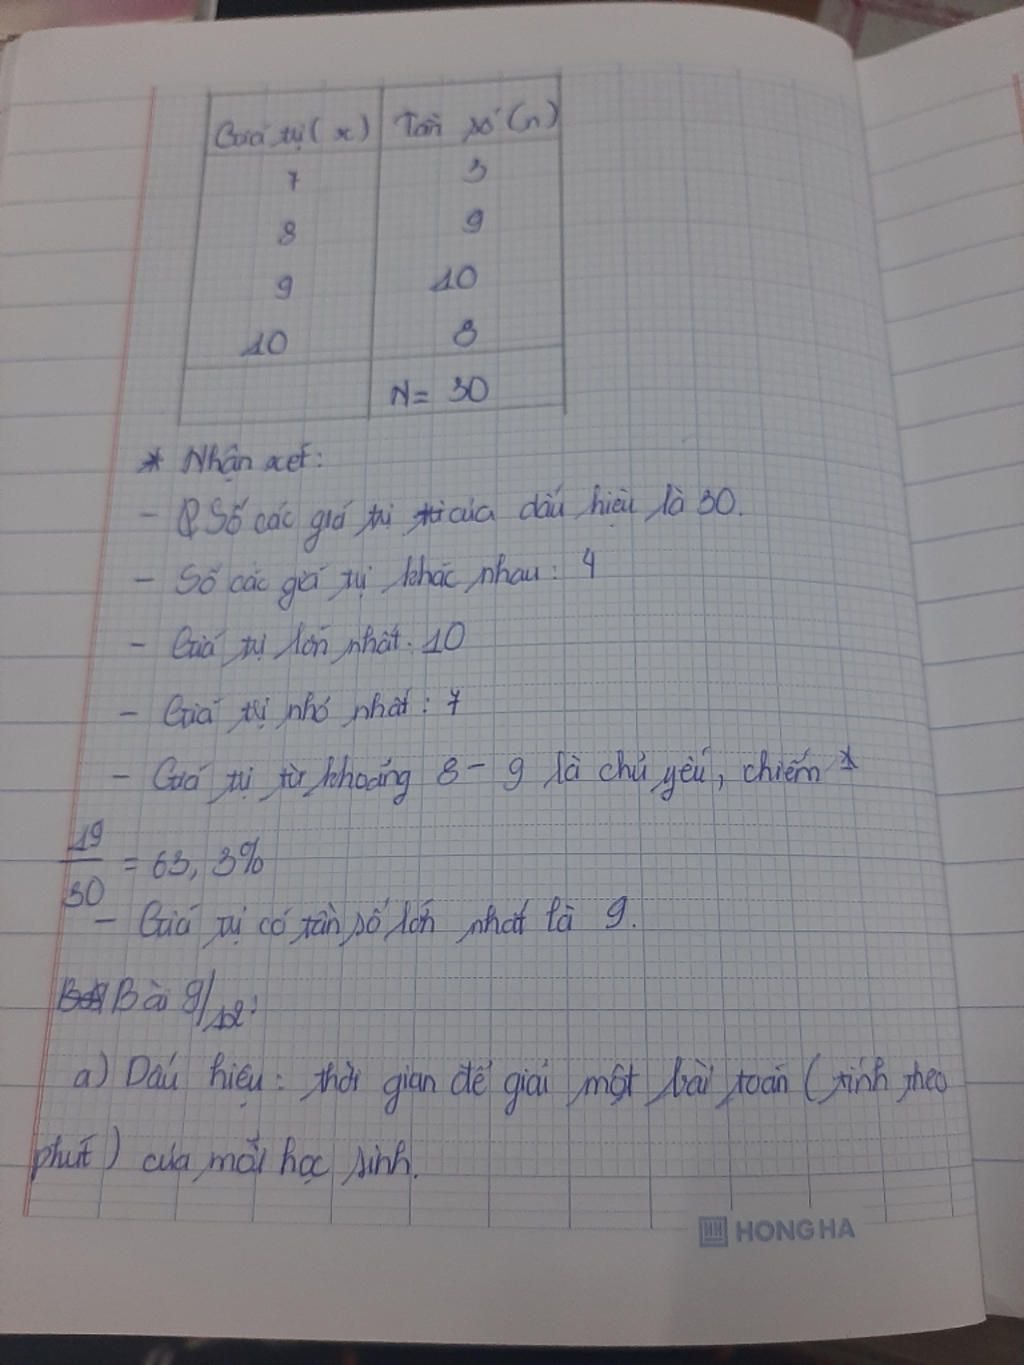 Giá trị (x) Tần số (n)
7 3
8 9
9 10
10 8
N = 30
* Nhận xét:
- Số các giá trị của dấu hiệu là 30.
- Số các giá trị khác nhau: 4
- Giá trị lớn nhất: 10
- Giá trị nhỏ nhất: 7
- Giá trị từ khoảng 8 - 9 là chủ yếu, chiếm
19/30 = 63,3%
- Giá trị có tần số lớn nhất là 9.
Bài 9/12:
a) Dấu hiệu: thời gian để giải một bài toán (tính theo
phút) của mỗi học sinh.
HONG HA